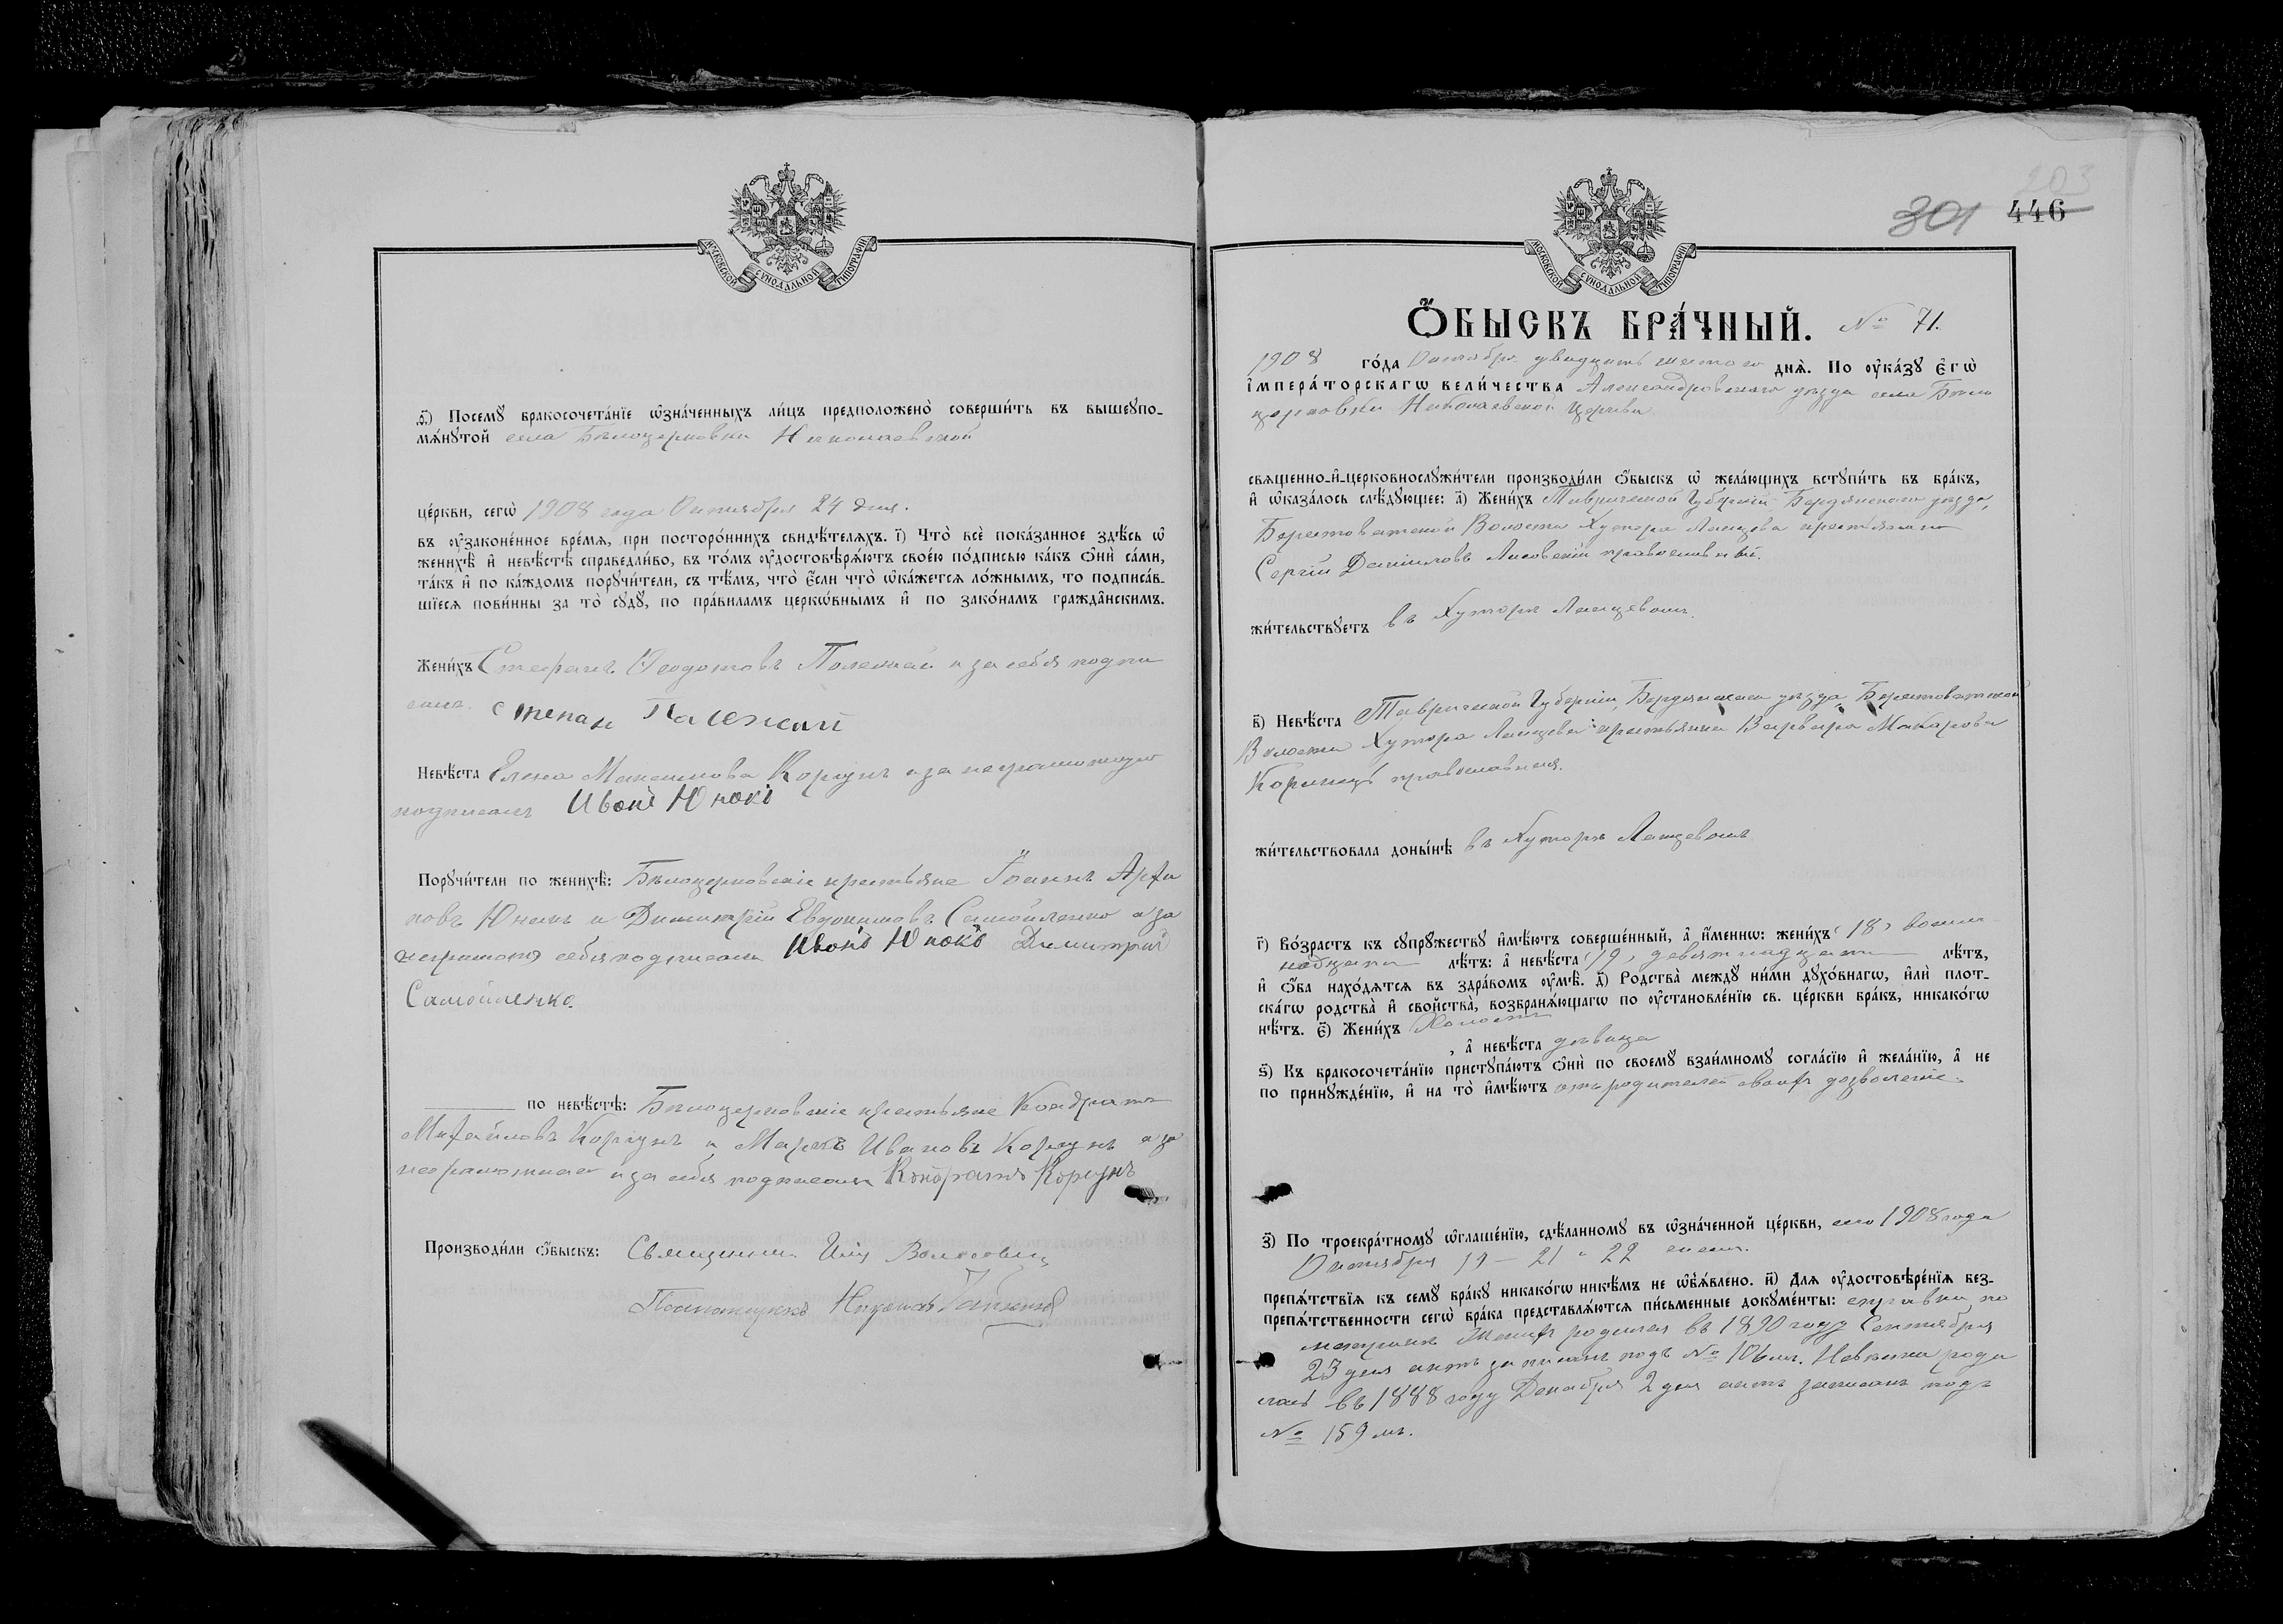 МОСКОВСКОЙ СѴНОДАЛЬНОЙ ТИПОГРАФІИ
Ѳ҃) Посемꙋ бракосочета́нїе ѡ҆зна́ченныхъ ли́цъ предположено̀ соверши́ть въ вышеупо-
мѧ́нꙋтой села Бѣлоцерковки Николаевской
це́ркви, сегѡ̀ 1908 года Октября 24 дня.
въ ᲂу҆законе́нное вре́мѧ, при посторо́ннихъ свидѣ́телѧхъ. і҃) Что̀ всѐ пока́занное здѣ́сь ѡ҆
женихѣ̀ и҆ невѣ́стѣ справедли́во, въ то́мъ ᲂу҆достовѣрѧ́ютъ свое́ю по́дписью ка́къ ѻ҆нѝ са́ми,
та́къ и҆ по ка́ждомъ порꙋчи́тели, съ тѣ́мъ, что̀ є҆́сли что̀ ѡ҆ка́жетсѧ ло́жнымъ, то подписа́в-
шїесѧ пови́нны за то̀ сꙋдꙋ̀, по пра́виламъ церкѡ́внымъ и҆ по зако́намъ гражда̑нскимъ.
Жени́хъ Стефанъ Ѳеодотовъ Полежай и за себя подпи
Степан
Невѣ́ста Елена Максимова Коргунъ а за неграмотную
подписалъ Иванъ Юнокъ
Порꙋчи́тели по женихѣ̀: Бѣлоцерковскіе крестьяне Іоаннъ
новъ Юнакъ и Димитрій Евдокимовъ Самойленко и за
себя подписали Иванъ Юнокъ Димитрий
Самойленко.
по невѣ́стѣ: Бѣлоцерковскіе крестьяне Кондратъ
Михайловъ Коргунъ и Марко Ивановъ Коргунъ а за
неграмотнаго и за себя подписалъ Кондратъ Коргунъ
Производи́ли ѻ҆́быскъ: Священникъ
Псаломщикъ
203
301 446
МОСКОВСКОЙ СѴНОДАЛЬНОЙ ТИПОГРАФІИ
Ѻ҆́БЫСКЪ БРА́ЧНЫЙ. № 71.
1908 го́да Октября двадцать шестого днѧ̀. По ᲂу҆ка́зꙋ є҆гѡ̀
і҆мпера́торскагѡ вели́чества Александровскаго уѣзда села Бѣло
церковки Николаевской церкви
свѧще́нно-и҆-церковнослꙋжи́тели производи́ли ѻ҆́быскъ ѡ҆ жела́ющихъ встꙋпи́ть въ бра́къ,
и҆ ѡ҆каза́лось слѣ́дꙋющее: а҃) Жени́хъ Таврической Губерніи Бердянскаго уѣзда,
Берестоватской Волости Хутора крестьянинъ
Сергій Даніиловъ Лисовскій православный.
жи́тельствꙋетъ въ Хуторѣ
в҃) Невѣ́ста Таврической Губерніи, Бердянскаго уѣзда, Берестоватской
Волости Хутора крестьянка Варвара Макарова
православная.
жи́тельствовала доны́нѣ въ Хуторѣ
г҃) Во́зрастъ къ сꙋпрꙋ́жествꙋ и҆мѣ́ютъ соверше́нный, а҆ и҆́меннѡ: жени́хъ (18) восем
надцати лѣ́тъ: а҆ невѣ́ста (19) девятнадцати лѣ́тъ,
и҆ ѻ҆́ба нахо́дѧтсѧ въ здра́вомъ ᲂу҆мѣ̀. д҃) Родства̀ междꙋ ни́ми дꙋхо́внагѡ, и҆лѝ плот-
ска́гѡ родства̀ и҆ сво́йства̀, возбранѧ́ющагѡ по ᲂу҆становле́нїю св. це́ркви бра́къ, никако́гѡ
нѣ́тъ. є҃) Жени́хъ Холостъ
, а҆ невѣ́ста дѣвица
ѕ҃) Къ бракосочета́нїю пристꙋпа́ютъ ѻ҆нѝ по своемꙋ̀ взаи́мномꙋ согла́сїю и҆ жела́нїю, а҆ не
по принꙋжде́нїю, и҆ на то̀ и҆мѣ́ютъ отъ родителей своихъ дозволеніе.
з҃) По троекра́тномꙋ ѡ҆глаше́нїю, сдѣ́ланномꙋ въ ѡ҆зна́ченной це́ркви, сего 1908 года
Октября 19 — 21 и 22 числъ.
препѧ́тствїѧ къ семꙋ̀ бра́кꙋ никако́гѡ никѣ́мъ не ѡ҆б̾ѧ́влено. и҃) Для ᲂу҆достовѣре́нїѧ без-
препѧ́тственности сегѡ̀ бра́ка представлѧ́ютсѧ пи́сьменные докꙋме́нты: справки по
метрикѣ Женихъ родился въ 1890 году Сентября
23 дня актъ записанъ подъ № 106 м. Невѣста роди
лась въ 1888 году Декабря 2 дня актъ записанъ подъ
№ 159 м.